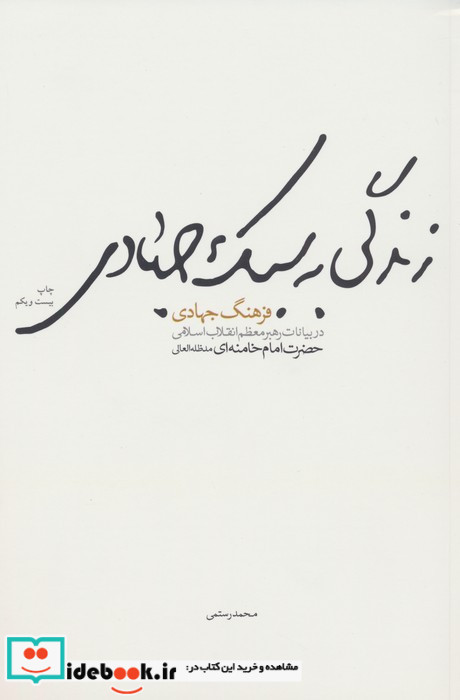 زندگی به سبک جهادی
چاپ
بیست و یکم
فرهنگ جهادی
در بیانات رهبر معظم انقلاب اسلامی
حضرت امام خامنه ای مدظله العالی
محمد رستمی
idebook.ir
مشاهده و خرید این کتاب در: